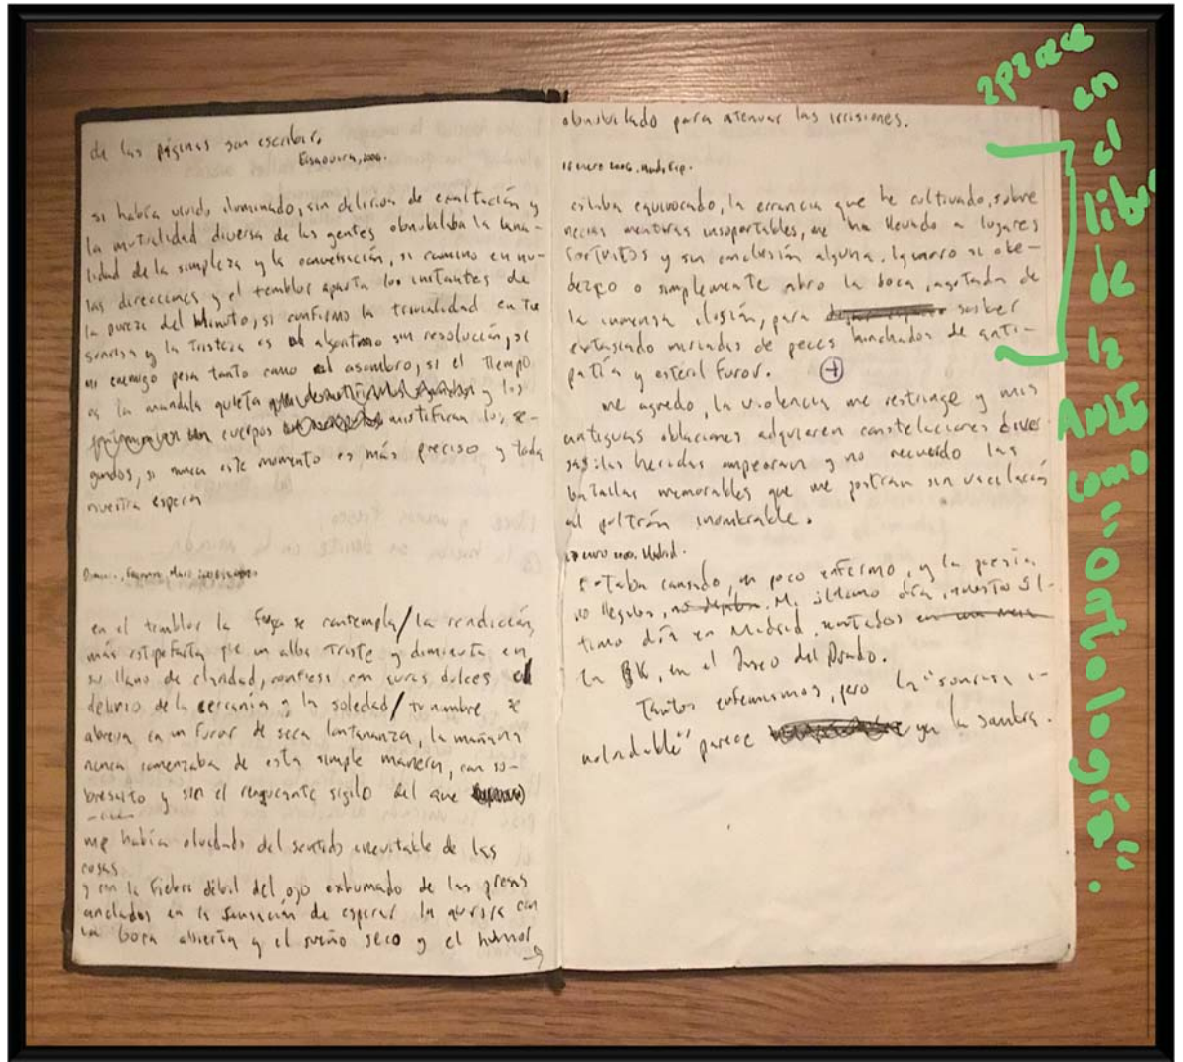 de las páginas sin escribir.
Essaouira, 2006.
si había vivido iluminado, sin delirios de exaltación y
la mutualidad diversa de las gentes obnubilaba la bana-
lidad de la simpleza y la conversación, si camino en nu-
las direcciones y el temblor aparta los instantes de
la pureza del minuto, si confirmo la trivialidad en tu
sonrisa y la tristeza es algoritmo sin resolución, si
mi enemigo pesa tanto como el asombro, si el tiempo
es la mandala quieta y los
cuerpos mistifican los se-
gundos, si nunca este momento es más preciso y toda
nuestra espera
en el temblor la fuerza se contempla/la rendición
más estupefacta que un alba triste y dimienta en
su llano de claridad, confiesa con curas dulces el
delirio de la cercanía y la soledad/tu nombre se
abreva en un furor de seca lontananza, la mañana
nunca comenzaba de esta simple manera, con so-
bresalto y sin el renqueante sigilo del que
me había olvidado del sentido inevitable de las
cosas
y con la fiebre débil del ojo exhumado de las presas
anclados en la sensación de esperar la aurora con
la boca abierta y el sueño seco y el humor
obnubilado para atenuar las irrisiones.
16 enero 2006. Madrid.
estaba equivocado, la errancia que he cultivado, sobre
necias mentiras insoportables, me ha llevado a lugares
fortuitos y sin conclusión alguna, ignoro si obe-
dezco o simplemente abro la boca, agotada de
la inmensa ilusión, para sorber
extasiado miríadas de peces hinchados de anti-
patía y estéril furor. +
me agredo, la violencia me restringe y mis
antiguas oblaciones adquieren constelaciones diver
sas: las heridas empeoran y no recuerdo las
batallas memorables que me postran sin vacilación
al poltrón innombrable.
enero 2006. Madrid.
estaba cansado, un poco enfermo, y la poesía
no llegaba, Mi último día, nuestro úl-
timo día en Madrid, sentados
en BK, en el Paseo del Prado.
Tantos eufemismos, pero la "sonrisa i-
nolvidable" parece ya la sombra.
aparece
en
el
libro
de
la
AMLG
como
"Ontología".